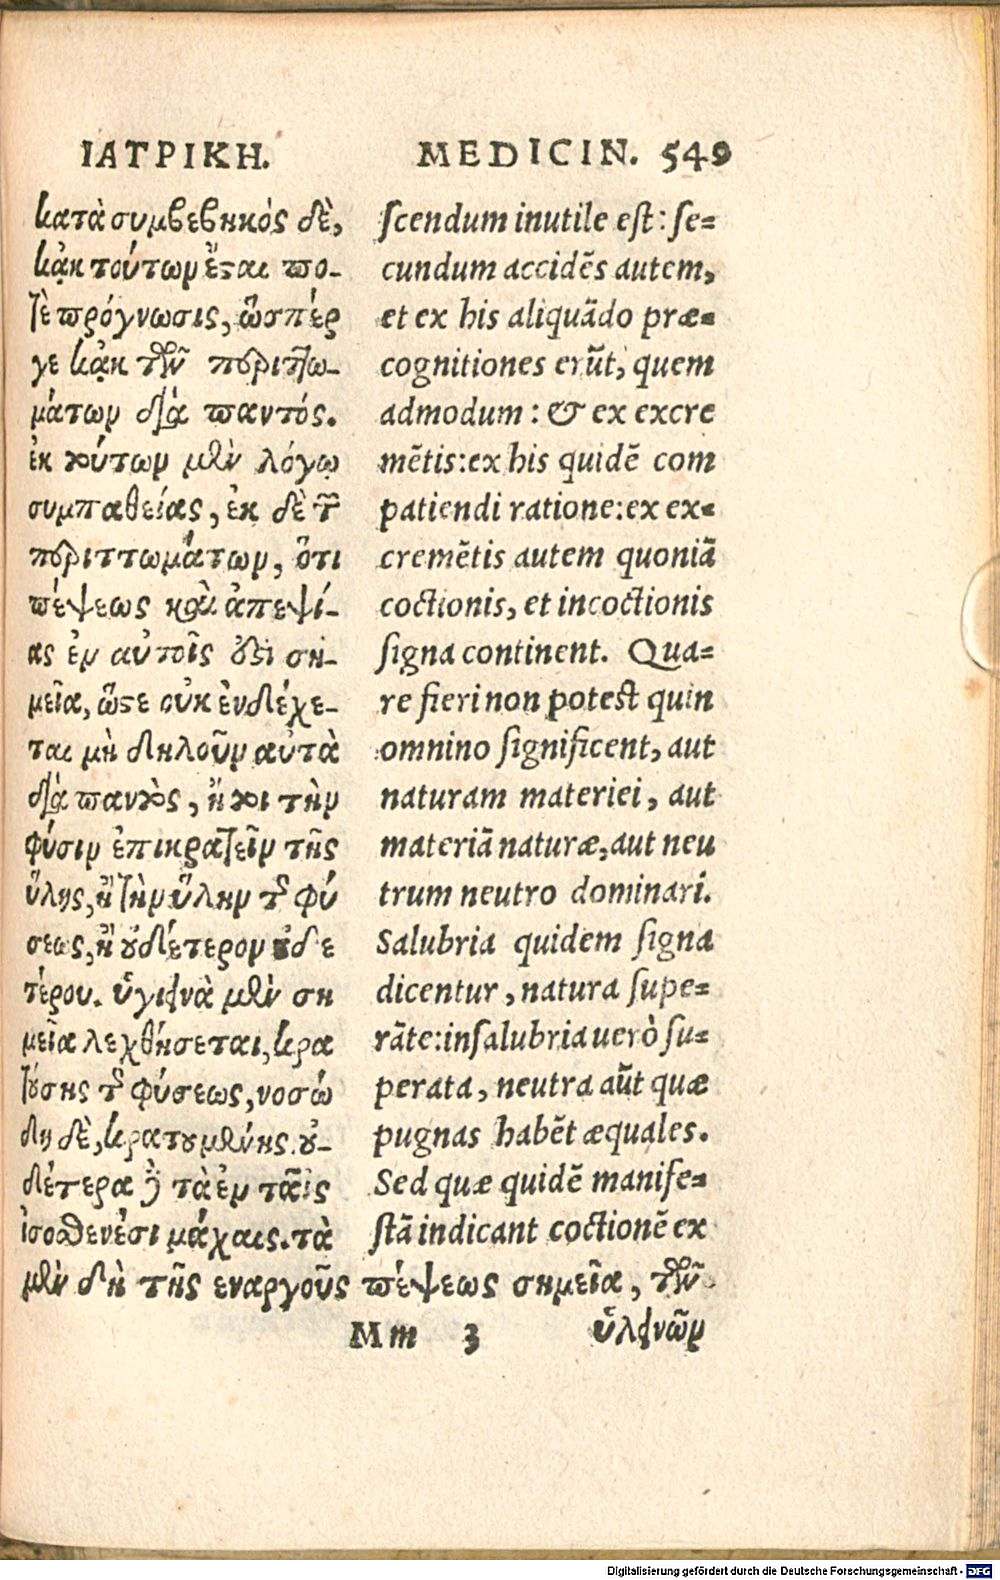 ΙΑΤΡΙΚΗ.
κατὰ συμβεβηκός δὲ,
κἀκ τούτων ἔσται πο-
τὲ πρόγνωσις, ὥσπέρ
γε κἀκ τῶν περιττω-
μάτων διὰ παντός.
ἐκ τούτων μὲν λόγῳ
συμπαθείας, ἐκ δὲ τῶν
περιττωμάτων, ὅτι
πέψεως καὶ ἀπεψί-
ας ἐν αὐτοῖς ἐστὶ ση-
μεῖα, ὥστε οὐκ ἐνδέχε-
ται μὴ δηλοῦν αὐτὰ
διὰ παντὸς, ἤτοι τὴν
φύσιν ἐπικρατεῖν τῆς
ὕλης, ἢ τὴν ὕλην τῆς φύ
σεως, ἢ οὐδέτερον οὐδε
τέρου. ὑγιεινὰ μὲν ση
μεῖα λεχθήσεται, κρα
τούσης τῆς φύσεως, νοσώ
δη δὲ, κρατουμένης. οὐ-
δέτερα δὲ τὰ ἐν ταῖς
ἰσοσθενέσι μάχαις. τὰ
μὲν δὴ τῆς εναργοῦς πέψεως σημεῖα, τῶν
MEDICIN. 549
scendum inutile est: se=
cundum accidẽs autem,
et ex his aliquãdo præ=
cognitiones erũt, quem
admodum: & ex excre
mẽtis: ex his quidẽ com
patiendi ratione: ex ex=
cremẽtis autem quoniã
coctionis, et incoctionis
signa continent. Qua=
re fieri non potest quin
omnino significent, aut
naturam materiei, aut
materiã naturæ, aut neu
trum neutro dominari.
Salubria quidem signa
dicentur, natura supe=
rãte: insalubria uerò su=
perata, neutra aũt quæ
pugnas habẽt æquales.
Sed quæ quidẽ manife=
stã indicant coctionẽ ex
Mm 3
ὑλεινῶν
Digitalisierung gefördert durch die Deutsche Forschungsgemeinschaft - DFG